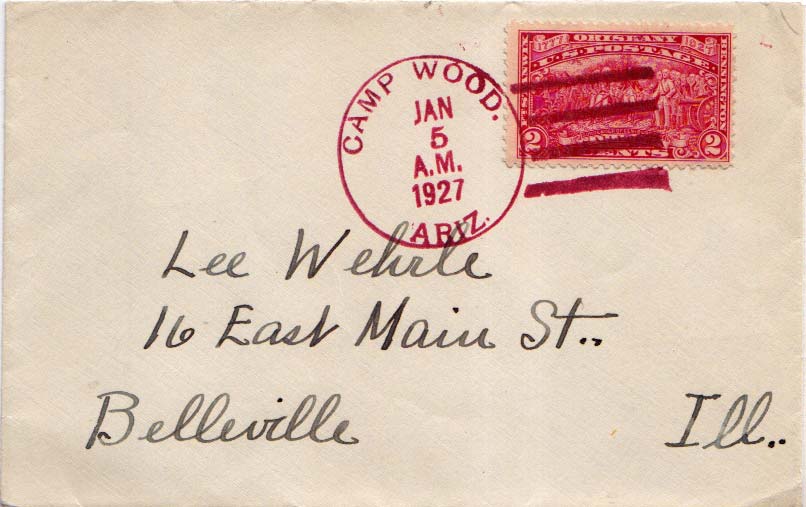 CAMP WOOD.
JAN
5
A.M.
1927
ARIZ.
1777 ORISKANY 1927
U.S. POSTAGE
FT. STANWIX
BENNINGTON
2 CENTS 2
Lee Wehrle
16 East Main St..
Belleville Ill..